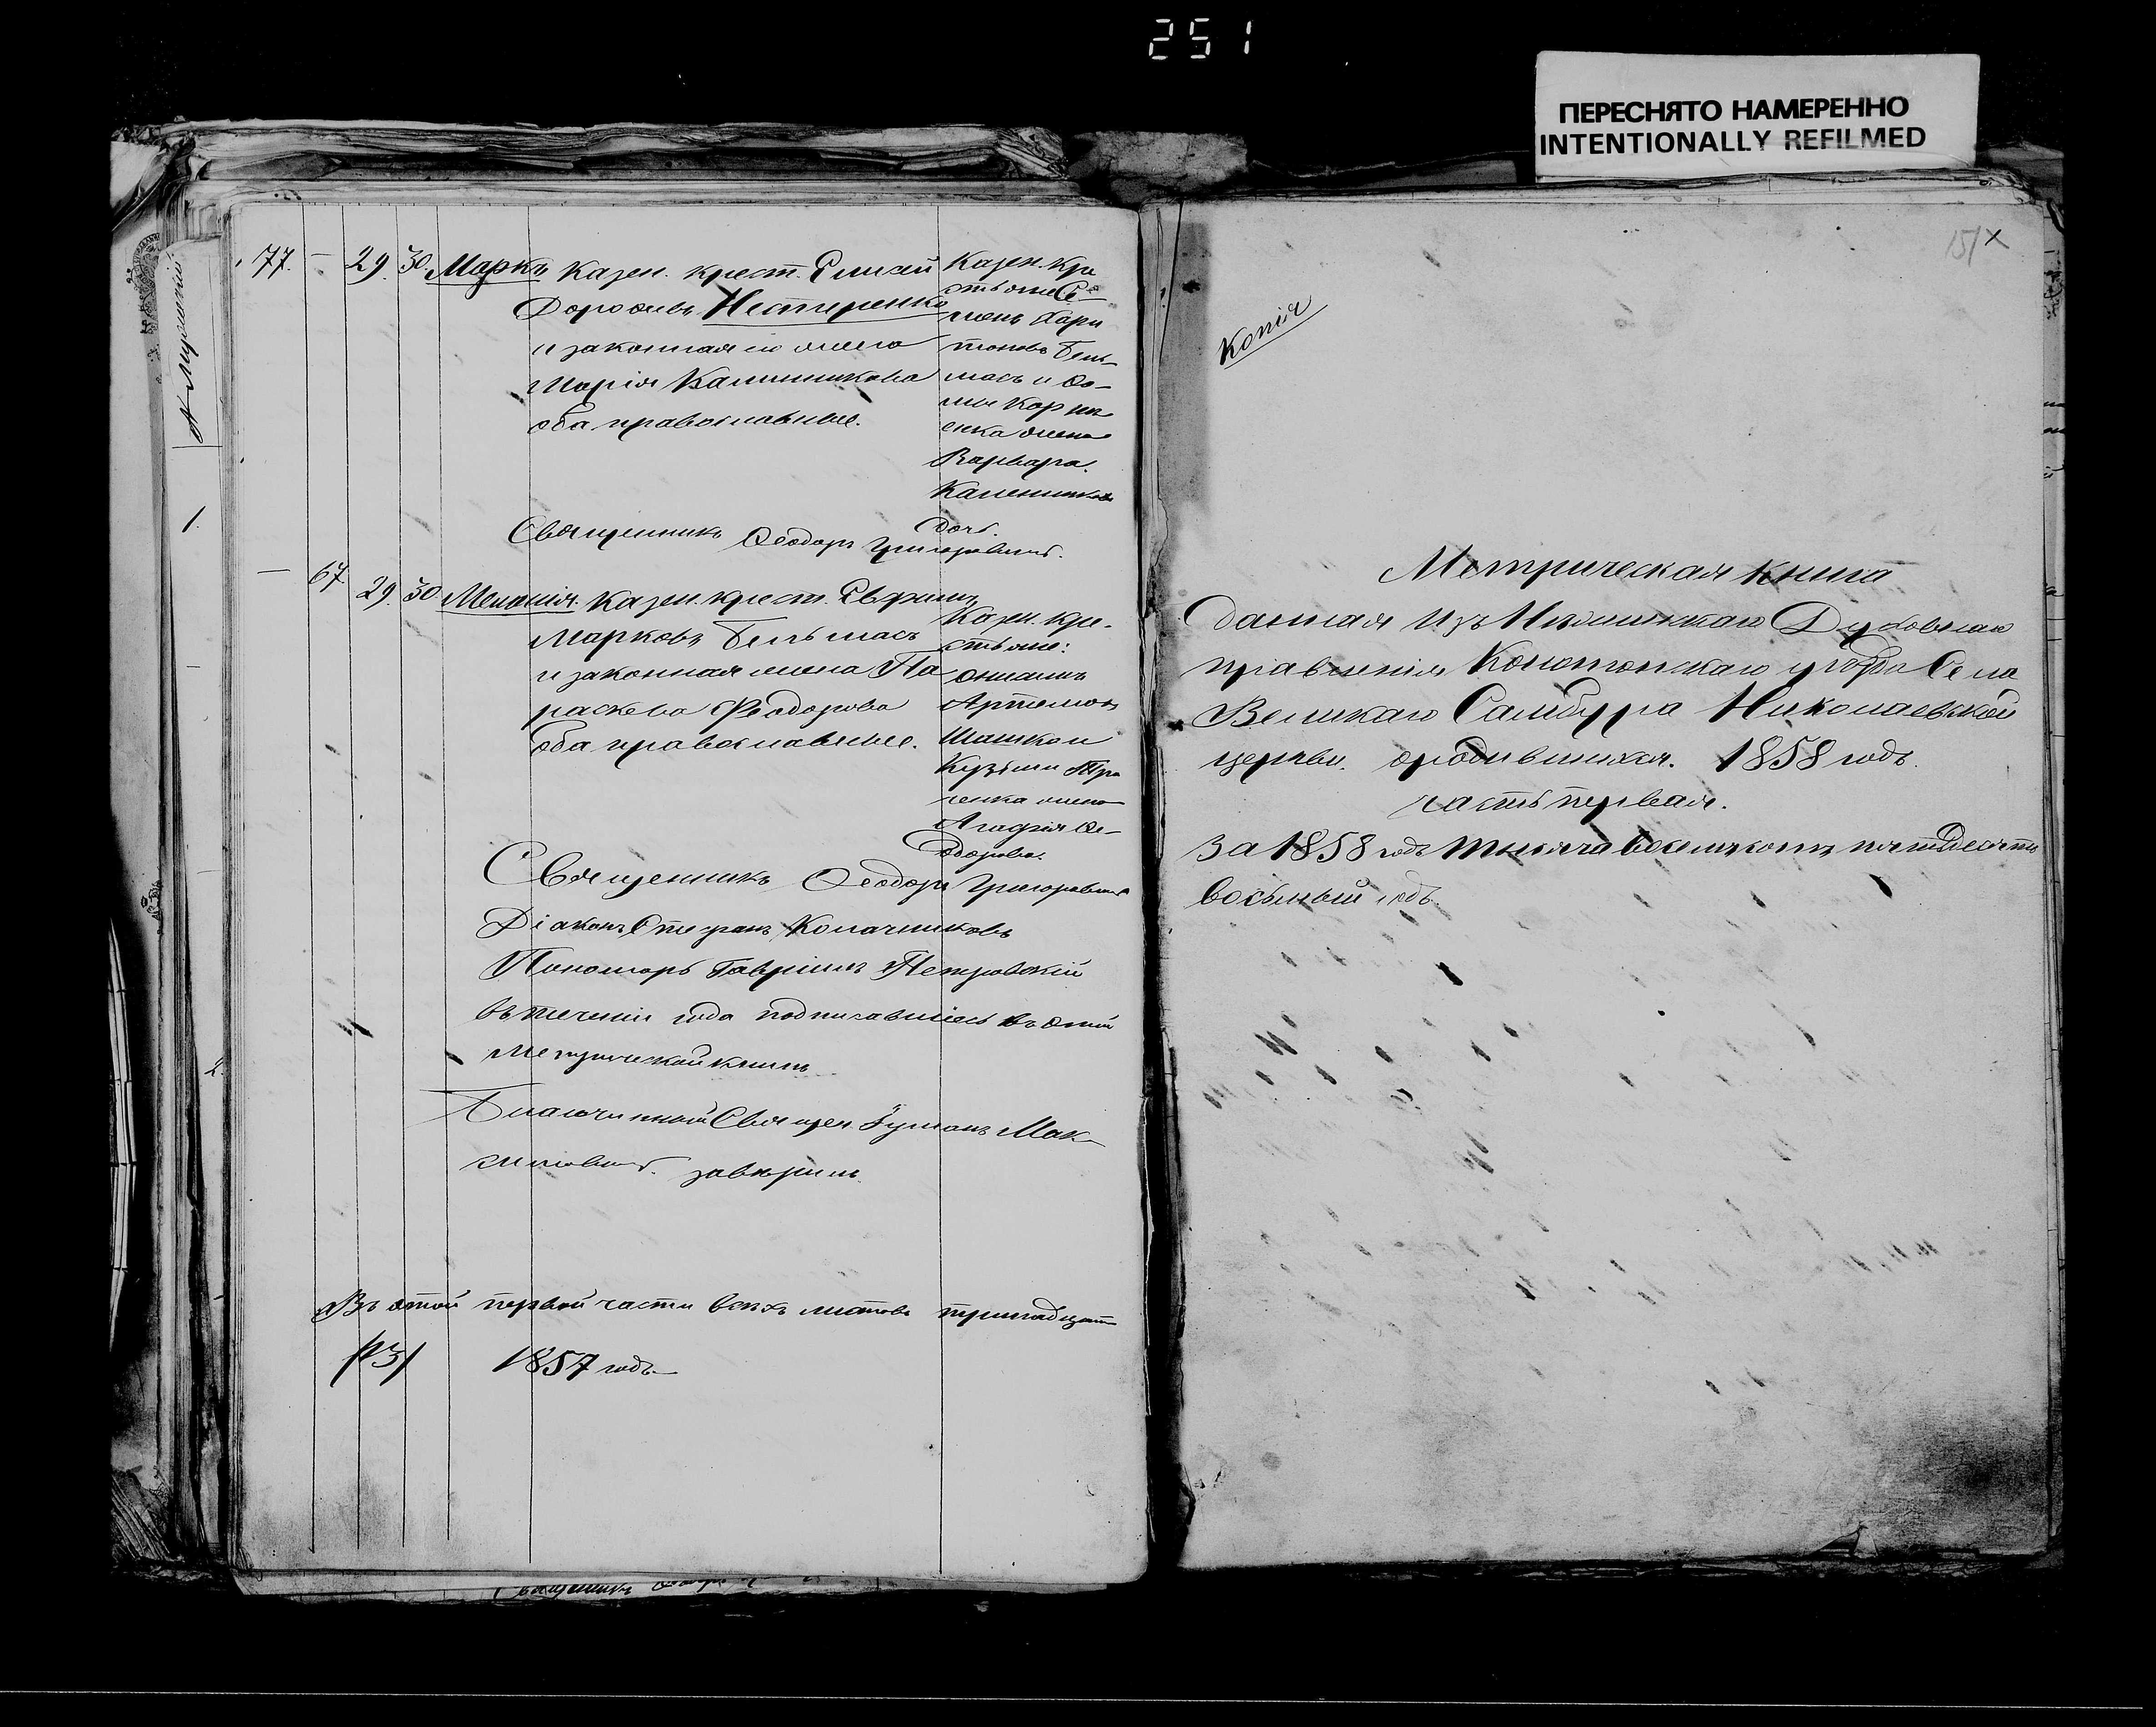 251
ПЕРЕСНЯТО НАМЕРЕННО
INTENTIONALLY REFILMED
77. — 29. 30. Маркъ Казен. крест. Елисей
Дорофеевъ Нестеренко
и законная его жена
Марія Калинникова
оба православные.
Казен. кре
стьяне Се-
менъ Хари
тоновъ Бель-
масъ и Ѳо-
мы
жена
Варвара.
дочь.
Священникъ Ѳеодоръ Григоровичъ.
— 67. 29. 30. Меланія. Казен. крест. Евфимъ
Марковъ Бельмасъ
и законная жена Па
раскева Феодорова
оба православные.
Казен. кре-
стьяне:
Артемовъ
Шашко и
Кузьмы
жена
Агафія Ѳе-
одорова.
Священникъ Ѳеодоръ Григоровичъ
Діаконъ Стефанъ Колачниковъ
Пономарь Гавріилъ Петровскій
въ теченіи года подписавшіесь въ этой
метрической книгѣ
Благочинный Священ. Мак-
симовичъ. завѣрилъ.
Въ этой первой части всѣхъ листовъ тринадцать
/13/ 1857 годъ
А Мужескій
1.
2.
151 x
Копія
Метрическая книга
данная изъ Нѣжинскаго Духовнаго
правленія Конотопскаго уѣзда Села
Великаго Самбура Николаевской
церкви. о родившихся. 1858 годъ.
часть первая.
За 1858 годъ тысяча восемьсотъ пятьдесятъ
восьмый годъ.